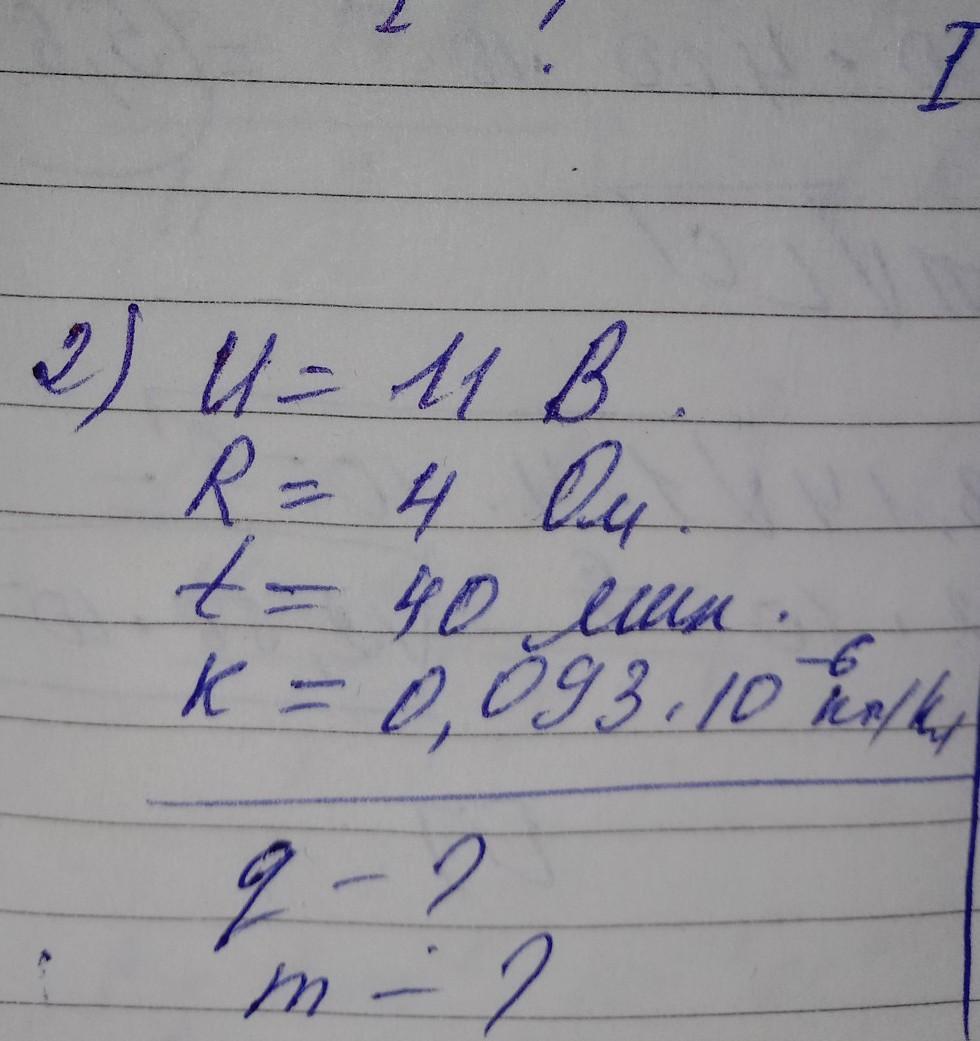 I
2) U = 11 В.
R = 4 Ом.
t = 40 мин.
к = 0,093 · 10⁻⁶ кг/Кл
q - ?
m - ?